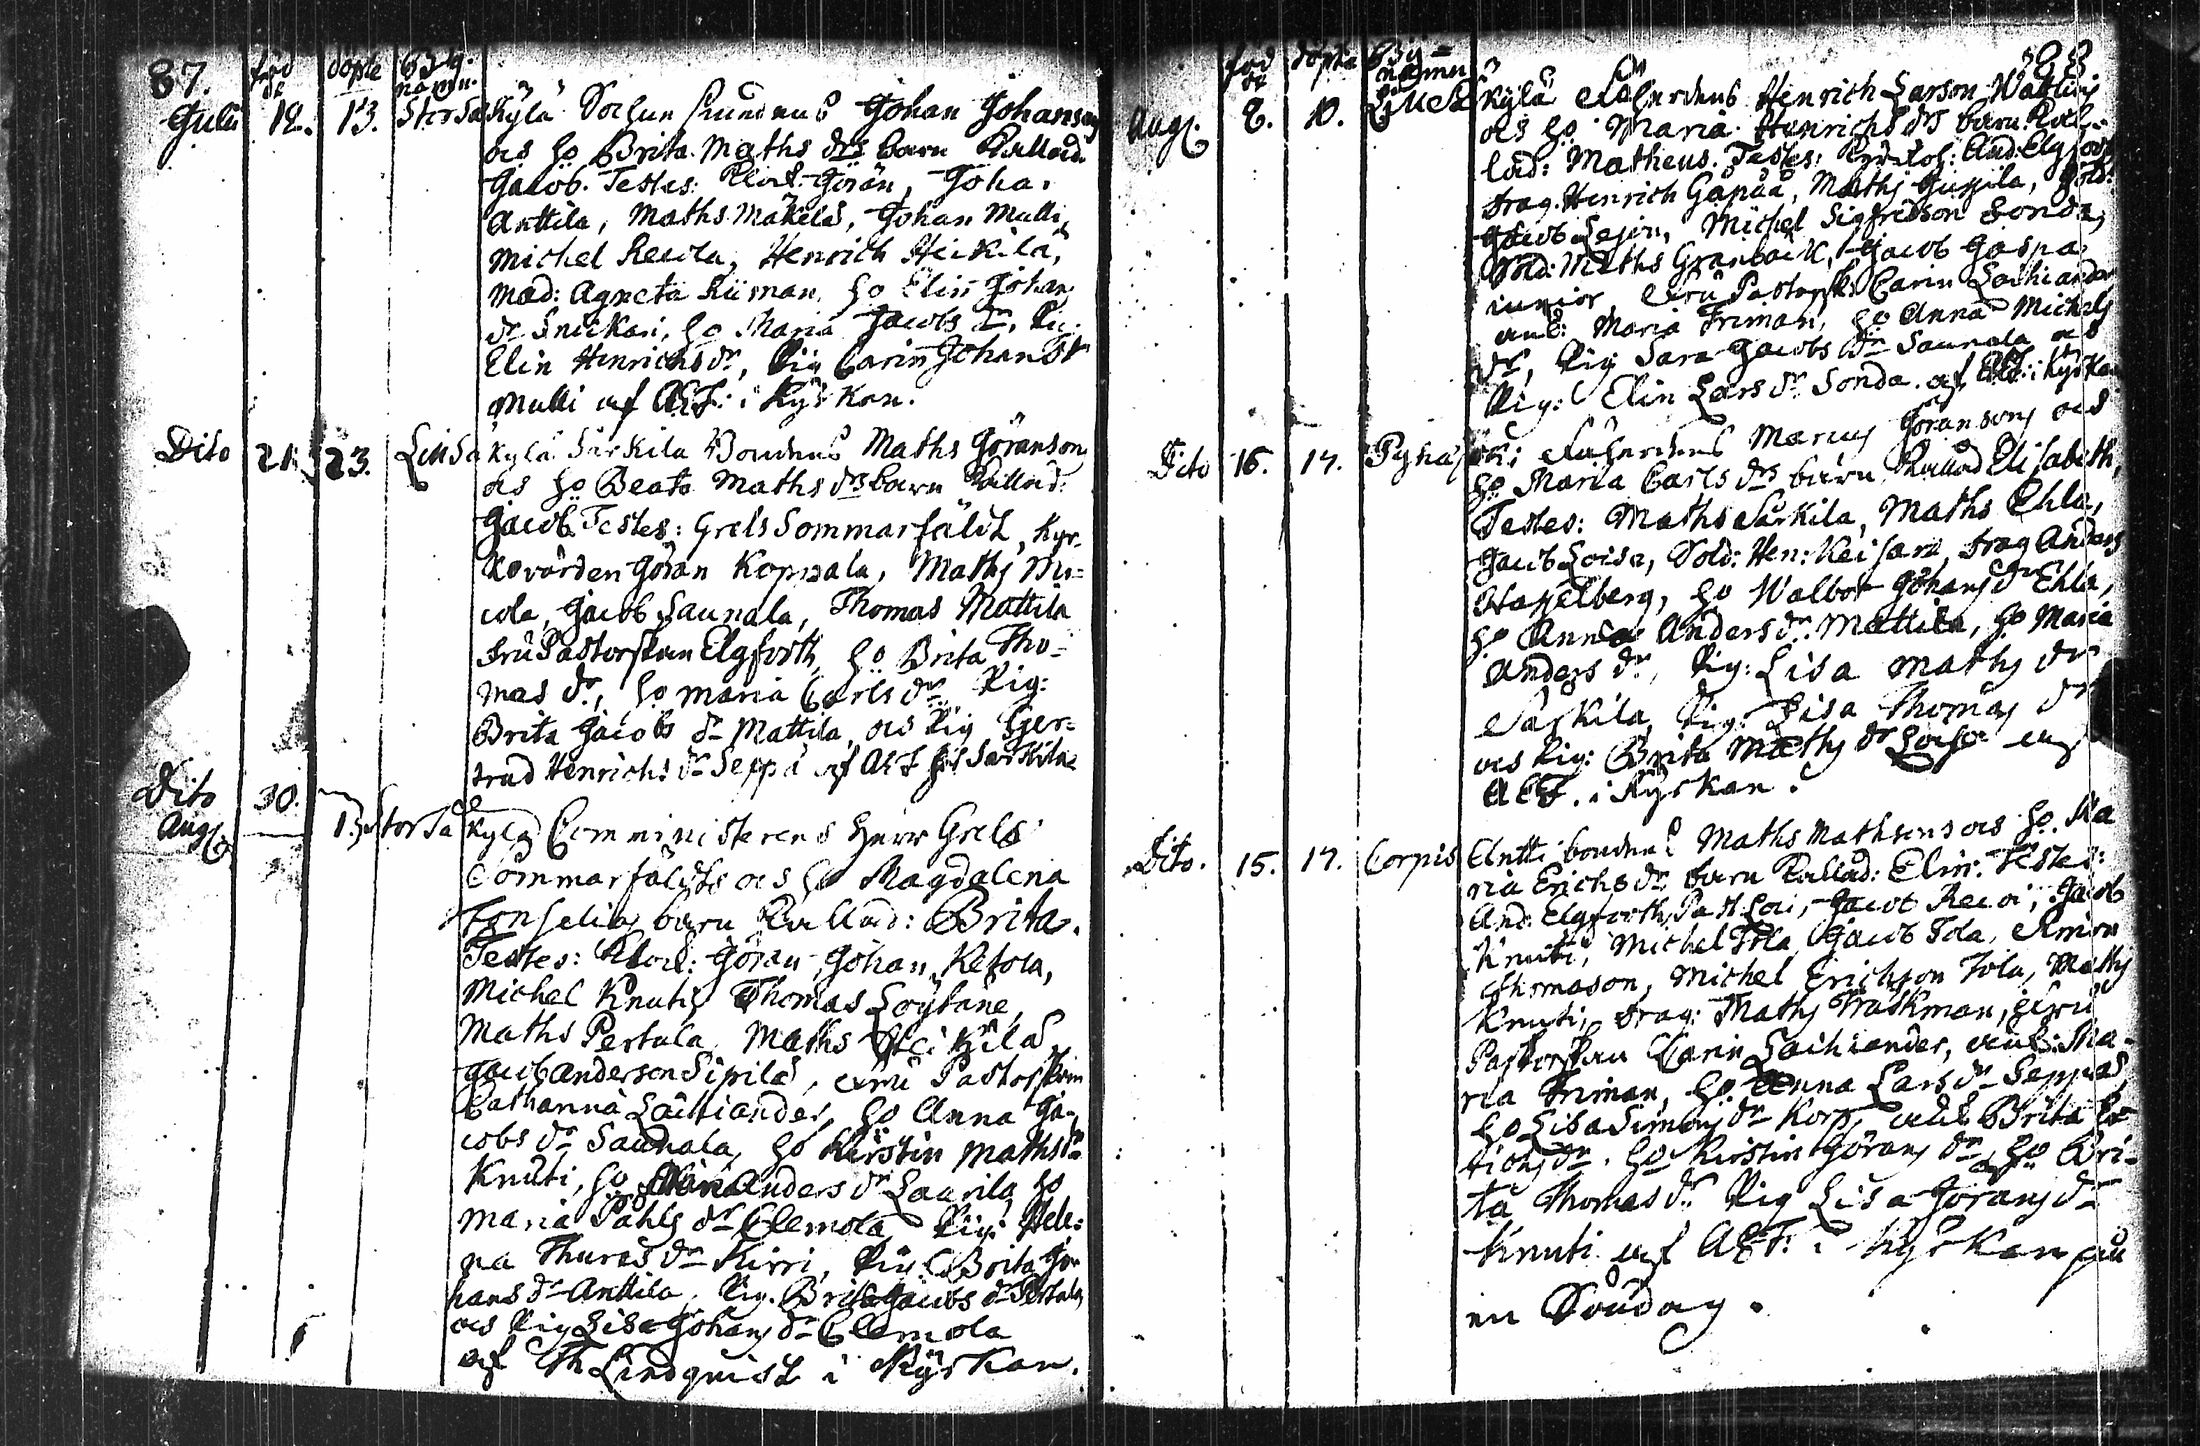 87. föd de döpte Byg. namn.
Julii 12. 13. Storsa Kylä Sochn Kundens Johan Johansons
ocs ho Brita Maths drs barn Kallad.
Jacob. Testes: Klock: Göran, Joha.
Anttila, Maths Mäkilä, Johan Mulli
Michel Recola, Henrich Heikilä,
mad: Agneta Riiman, ho Elin Johans
dr Snickari, ho Maria Jacobs dr, Pig.
Elin Henrichs dr, Pig Carin Johans dr
Mulli af AET: i Kyrkan.
Dito 21. 23. Lillsa Kylä Särkila Bondens Maths Göranson
ocs ho Beata Maths drs barn Kallad:
Jacob Testes: Grels Sommarfäldt, Kyr-
kovärden Göran Koppala, Maths
cola, Jacob Saunala, Thomas Mattila
fru Pastorskan Elgforth, ho Brita Tho-
mas dr, ho Maria Carls dr Pig:
Brita Jacobs dr Mattila, ocs Pig Ger-
trud Henrichs dr Seppä af AET hos Särkila
Dito 30.
Aug. 1. Storsa Kylä Comministerens Herr Grels
Sommarfäldts ocs ho Magdalena
barn Kallad: Brita.
Testes: Klock: Göran, Johan Ketola,
Michel Knuti, Thomas Löytäne,
Maths Pertula, Maths Heikilä,
Jacob Anderson Sipilä, fru Pastorskan
Catharina Lachiander, ho Anna Ja-
cobs dr Saunala, ho Kirstin Maths dr
Knuti, ho Anders dr Laurila, ho
Maria Påhls dr Clemola Pig: Hele-
na Thures dr Kirri, Pig: Brita Jo-
hans dr Anttila, Pig. Brita Jacobs dr Pertula
ocs Pig Lisa Johans dr Clemola
af Th Lindquist i Kyrkan.
föd de döpte By= namn 88
Aug. 8. 10. Lillsa Kylä Henrich Larson
ocs ho Maria Henrichs drs barn Kal-
lad: Matheus. Testes: And: Elgforth
drag. Henrich Gapää, Maths Jussila, Sold:
Jacob Lejon, Michel Sigfridson Sonda,
Sold: Maths Granbäck, Jacob Gaspa
iunior, fru Pastorsk: Carin Lachiander
Maria Friman, ho Anna Michels
dr, Pig Sara Jacobs dr Saunala ocs
Pig: Elin Lars dr Sonda af AET: i Kyrkan
Dito 16. 17. Pyhäj oki Marcus Göransons ocs
ho Maria Carls drs barn Kallad Elisabeth,
Testes: Maths Särkila, Maths Ehla,
Jacob Loisa, Sold: Hen: Keisari, drag Anders
Hasselberg, ho Walbor Johans dr Ehla,
ho Anna Anders dr Mattila, ho Maria
Anders dr, Pig: Lisa Maths dr
Särkila, Pig: Lisa Thomas dr
ocs Pig: Brita Maths dr Loisa af
AET. i Kyrkan.
Dito. 15. 17. Corpis Antti bondens Maths Mathsons ocs ho Ma
ria Erichs dr barn Kallad: Elin. Testes:
And: Elgforth, Past. Loci, Jacob Recoi, Jacob
Knuti, Michel Tola, Jacob Tola, Simon
Thomason, Michel Erichson Tola, Maths
Knuti, drag: Maths Traskman, fru
Pastorskan Carin Lachiander, Ma-
ria Friman, ho Anna Lars dr Seppälä,
ho Lisa Simons dr Korpi, Brita
dr. ho Kirstin Görans dr, ho Bri-
ta Thomas dr Pig Lisa Görans dr
Knuti af AET: i Kyrkan på
en Söndag.